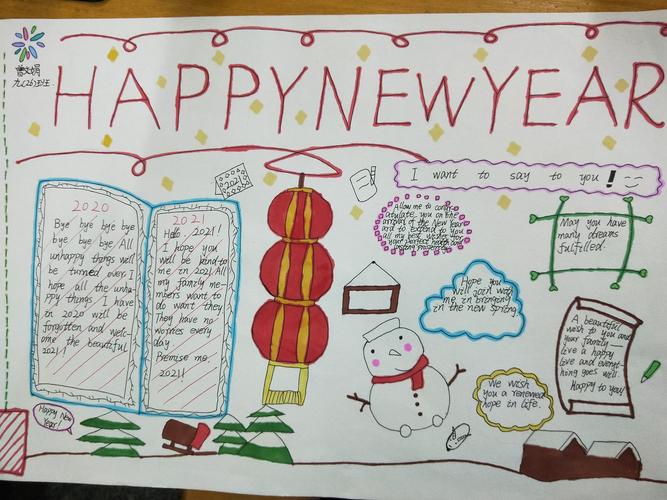 HAPPY NEW YEAR
九(26)班
I want to say to you!
2021
2020
Bye bye bye bye
bye bye bye. All
unhappy things will
be turned over. I
hope all the unha-
ppy things I have
in 2020 will be
forgotten and welc-
ome the beautiful
2021!
2021
Hello, 2021!
I hope you
will be kind to
me in 2021. All
my family me-
mbers want to
do want they
They have no
worries every
day
Promise me,
2021!
Allow me to congr-
atulate you on the
arrival of the New Year
and to extend to you
all my best wishes for
your perfect health and
May you have
many dreams
fulfilled.
Hope you
will join with
me in bringing
in the new spring
A beautiful
wish to you and
your family—
live a happy
live and everyt-
hing goes well.
Happy to you!
We wish
you a renewed
hope in life.
Happy New
Year!